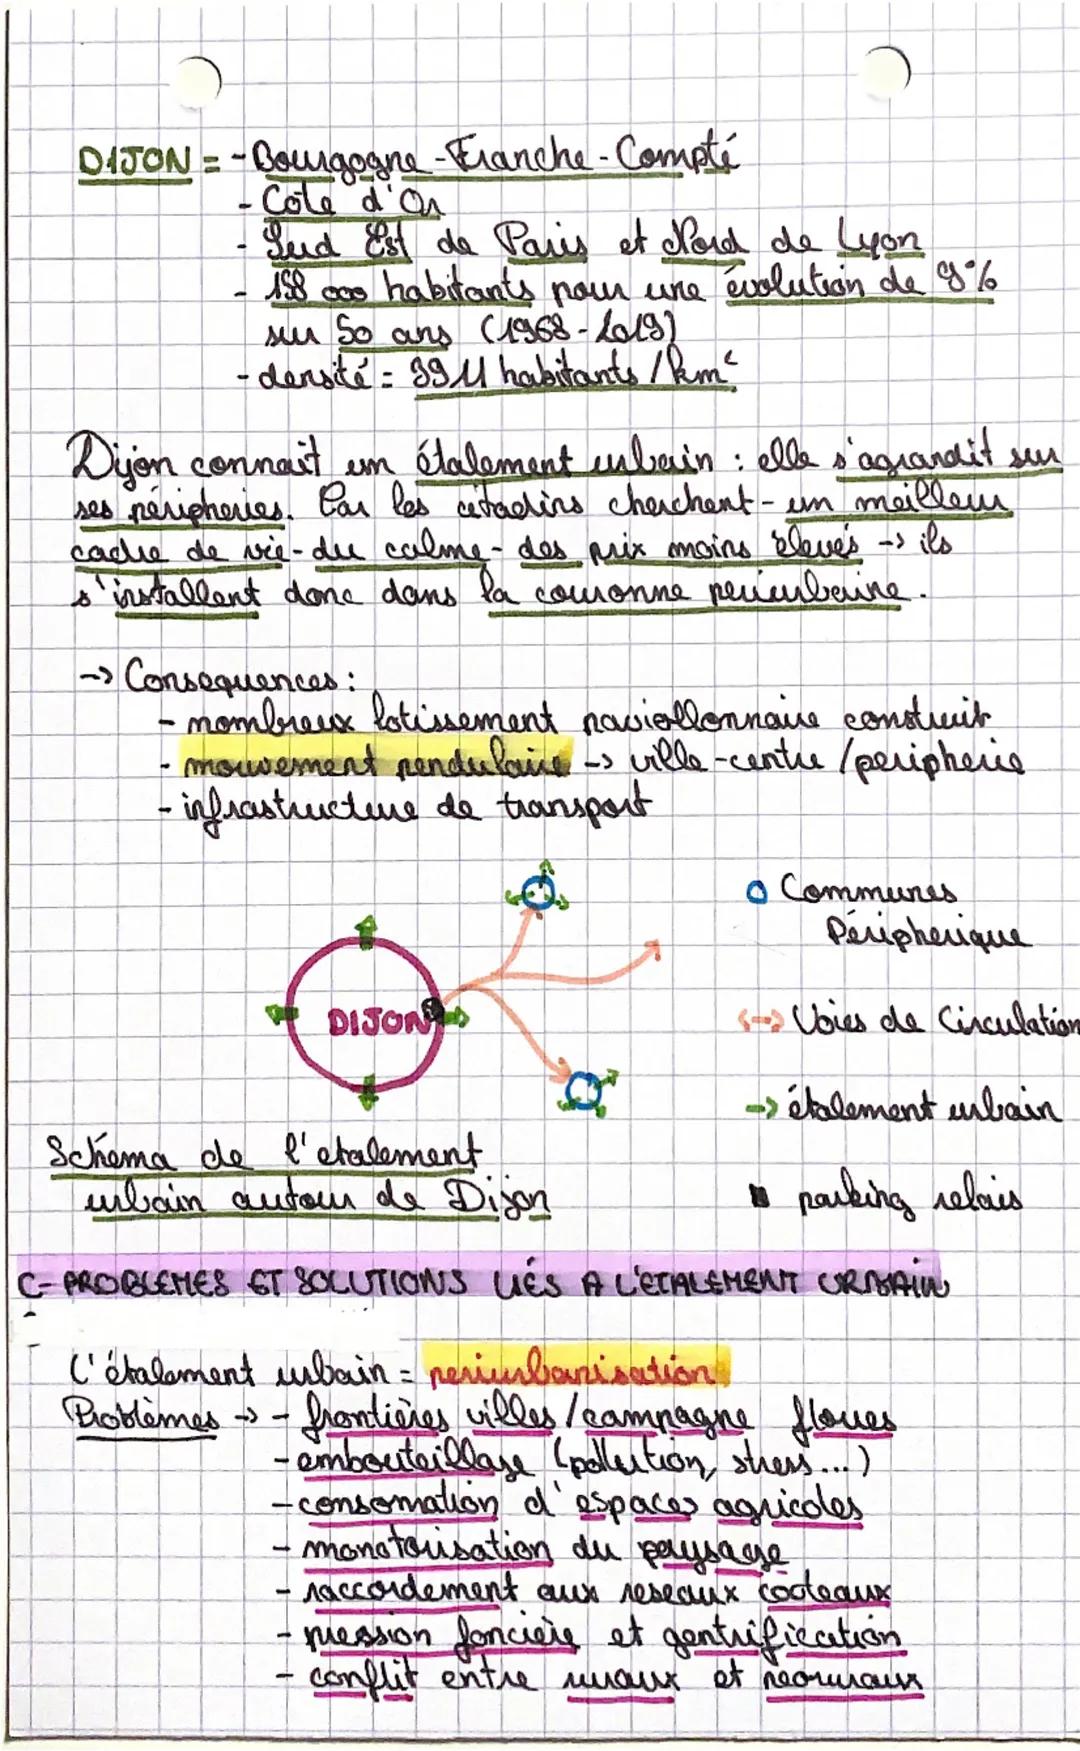 DIJON = - Bourgogne - Franche - Compté
- Côte d'Or
- Sud Est de Paris et Nord de Lyon
- 158 000 habitants pour une évolution de 9%
sur 50 ans (1968 - 2019)
- densité = 3911 habitants / km²
Dijon connait un étalement urbain : elle s'agrandit sur
ses péripheries. Car les citadins cherchent - un meilleur
cadre de vie - du calme - des prix moins élevés -> ils
s'installent donc dans la couronne periurbaine.
-> Consequences :
- nombreux lotissement paviollonnaire construit
- mouvement pendulaire -> ville - centre / peripherie
- infrastructure de transport
Communes
Péripherique
DIJON
<-> Voies de Circulation
-> étalement urbain
Schéma de l'etalement
urbain autour de Dijon
parking relais
C- PROBLEMES ET SOLUTIONS LIÉS A L'ETALEMENT URBAIN
L'étalement urbain = periurbanisation
Problèmes -> - frontières villes / campagne floues
- embouteillage (pollution, stress ...)
- consomation d'espaces agricoles
- monotorisation du paysage
- raccordement aux reseaux cooteaux
- pression foncière et gentrification
- conflit entre ruraux et néoruraux